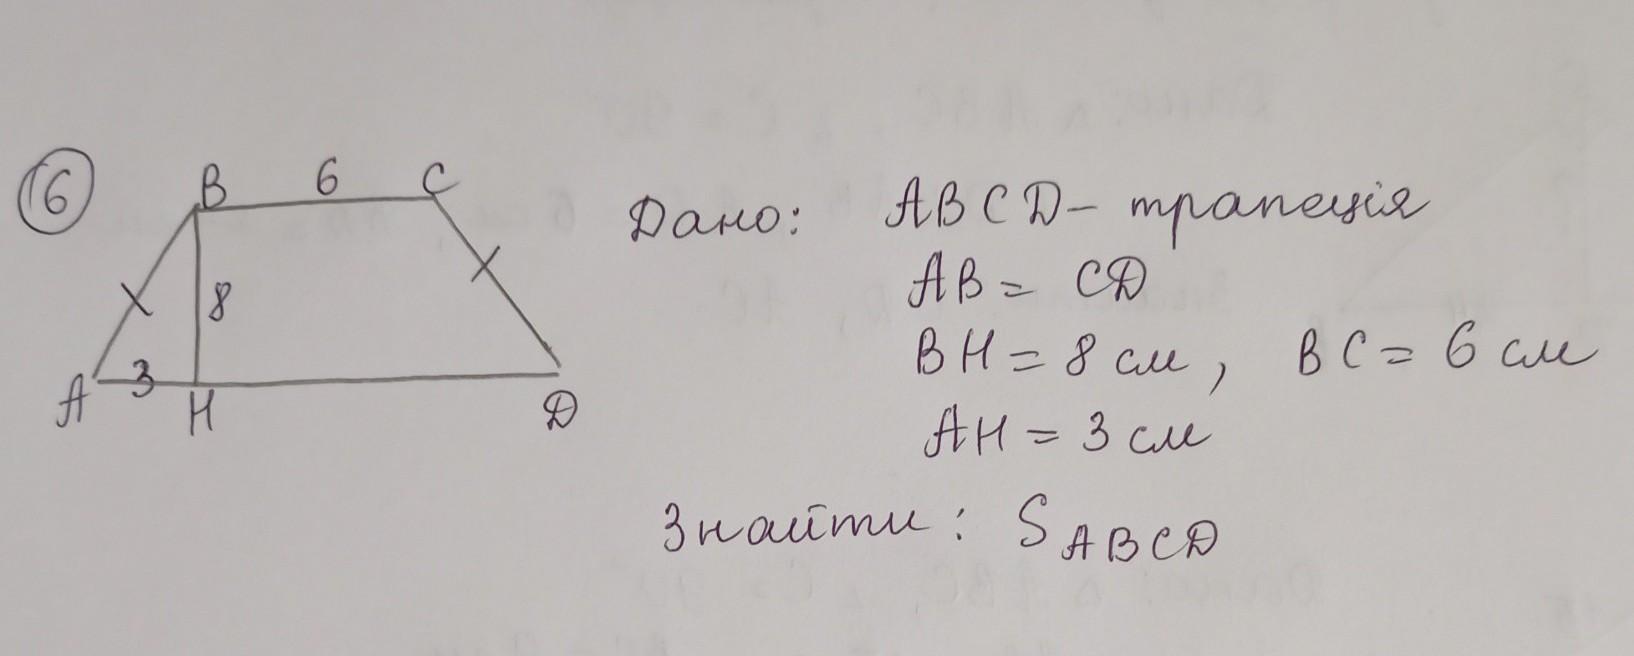 16
B 6 C
8
A 3 H D
Дано: ABCD - трапеція
AB = CD
BH = 8 см, BC = 6 см
AH = 3 см
Знайти: S ABCD